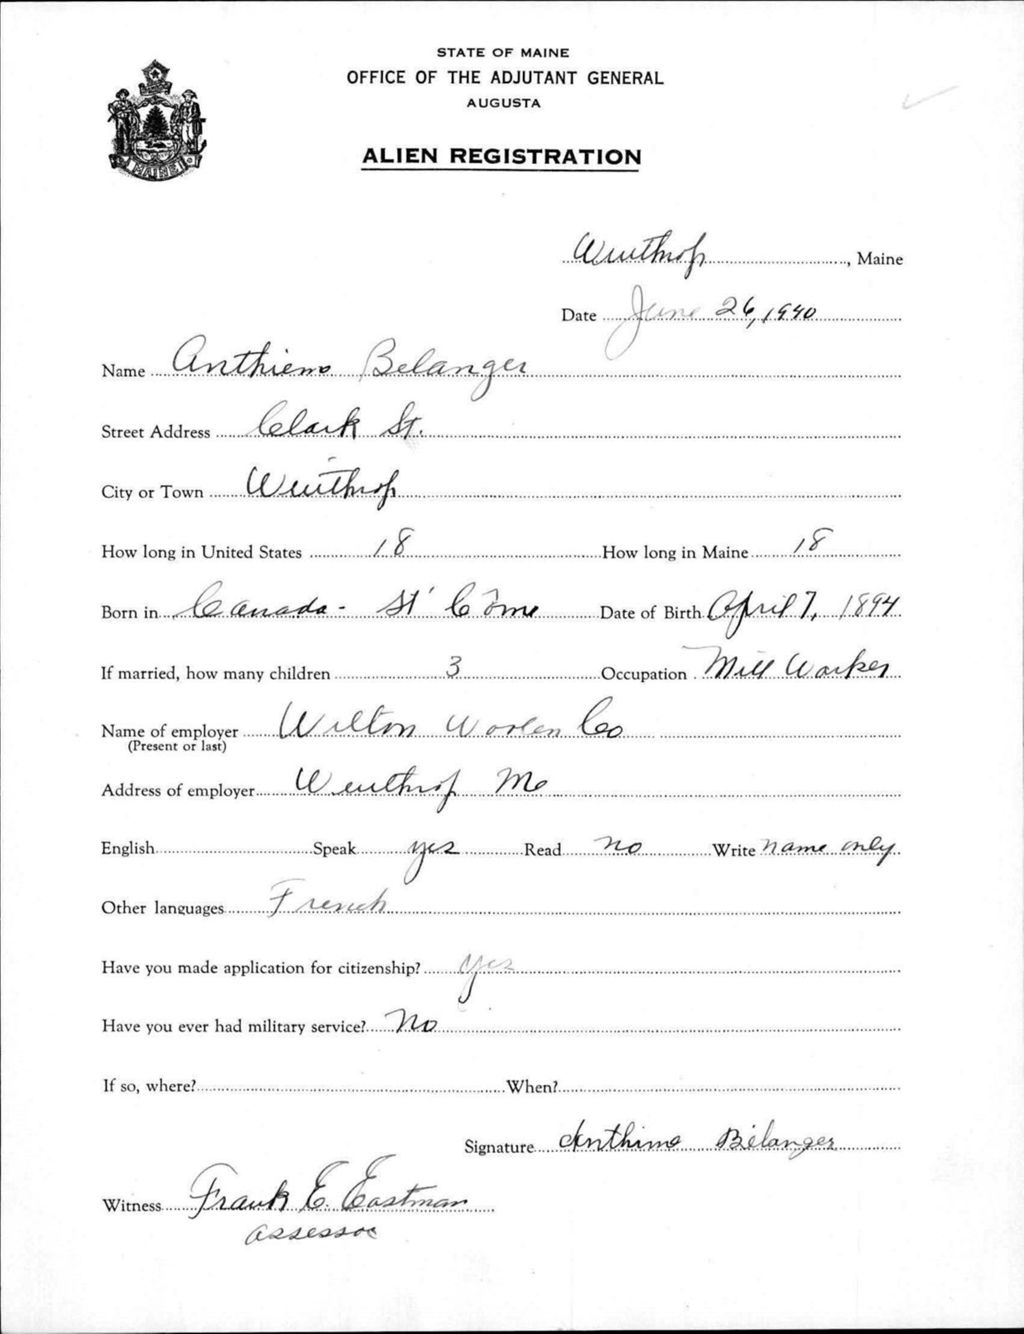 STATE OF MAINE
OFFICE OF THE ADJUTANT GENERAL
AUGUSTA
ALIEN REGISTRATION
MAINE
Winthrop, Maine
Date June 26, 1940
Name Anthieme Belanger
Street Address Clark St.
City or Town Winthrop
How long in United States 18 How long in Maine 18
Born in Canada - St Côme Date of Birth April 7, 1894
If married, how many children 3 Occupation Mill Worker
Name of employer Wilton Woolen Co
(Present or last)
Address of employer Winthrop Me
English Speak yes Read no Write name only
Other languages French
Have you made application for citizenship? Yes
Have you ever had military service? No
If so, where? When?
Signature Anthime Bélanger
Witness Frank E. Eastman
assessor